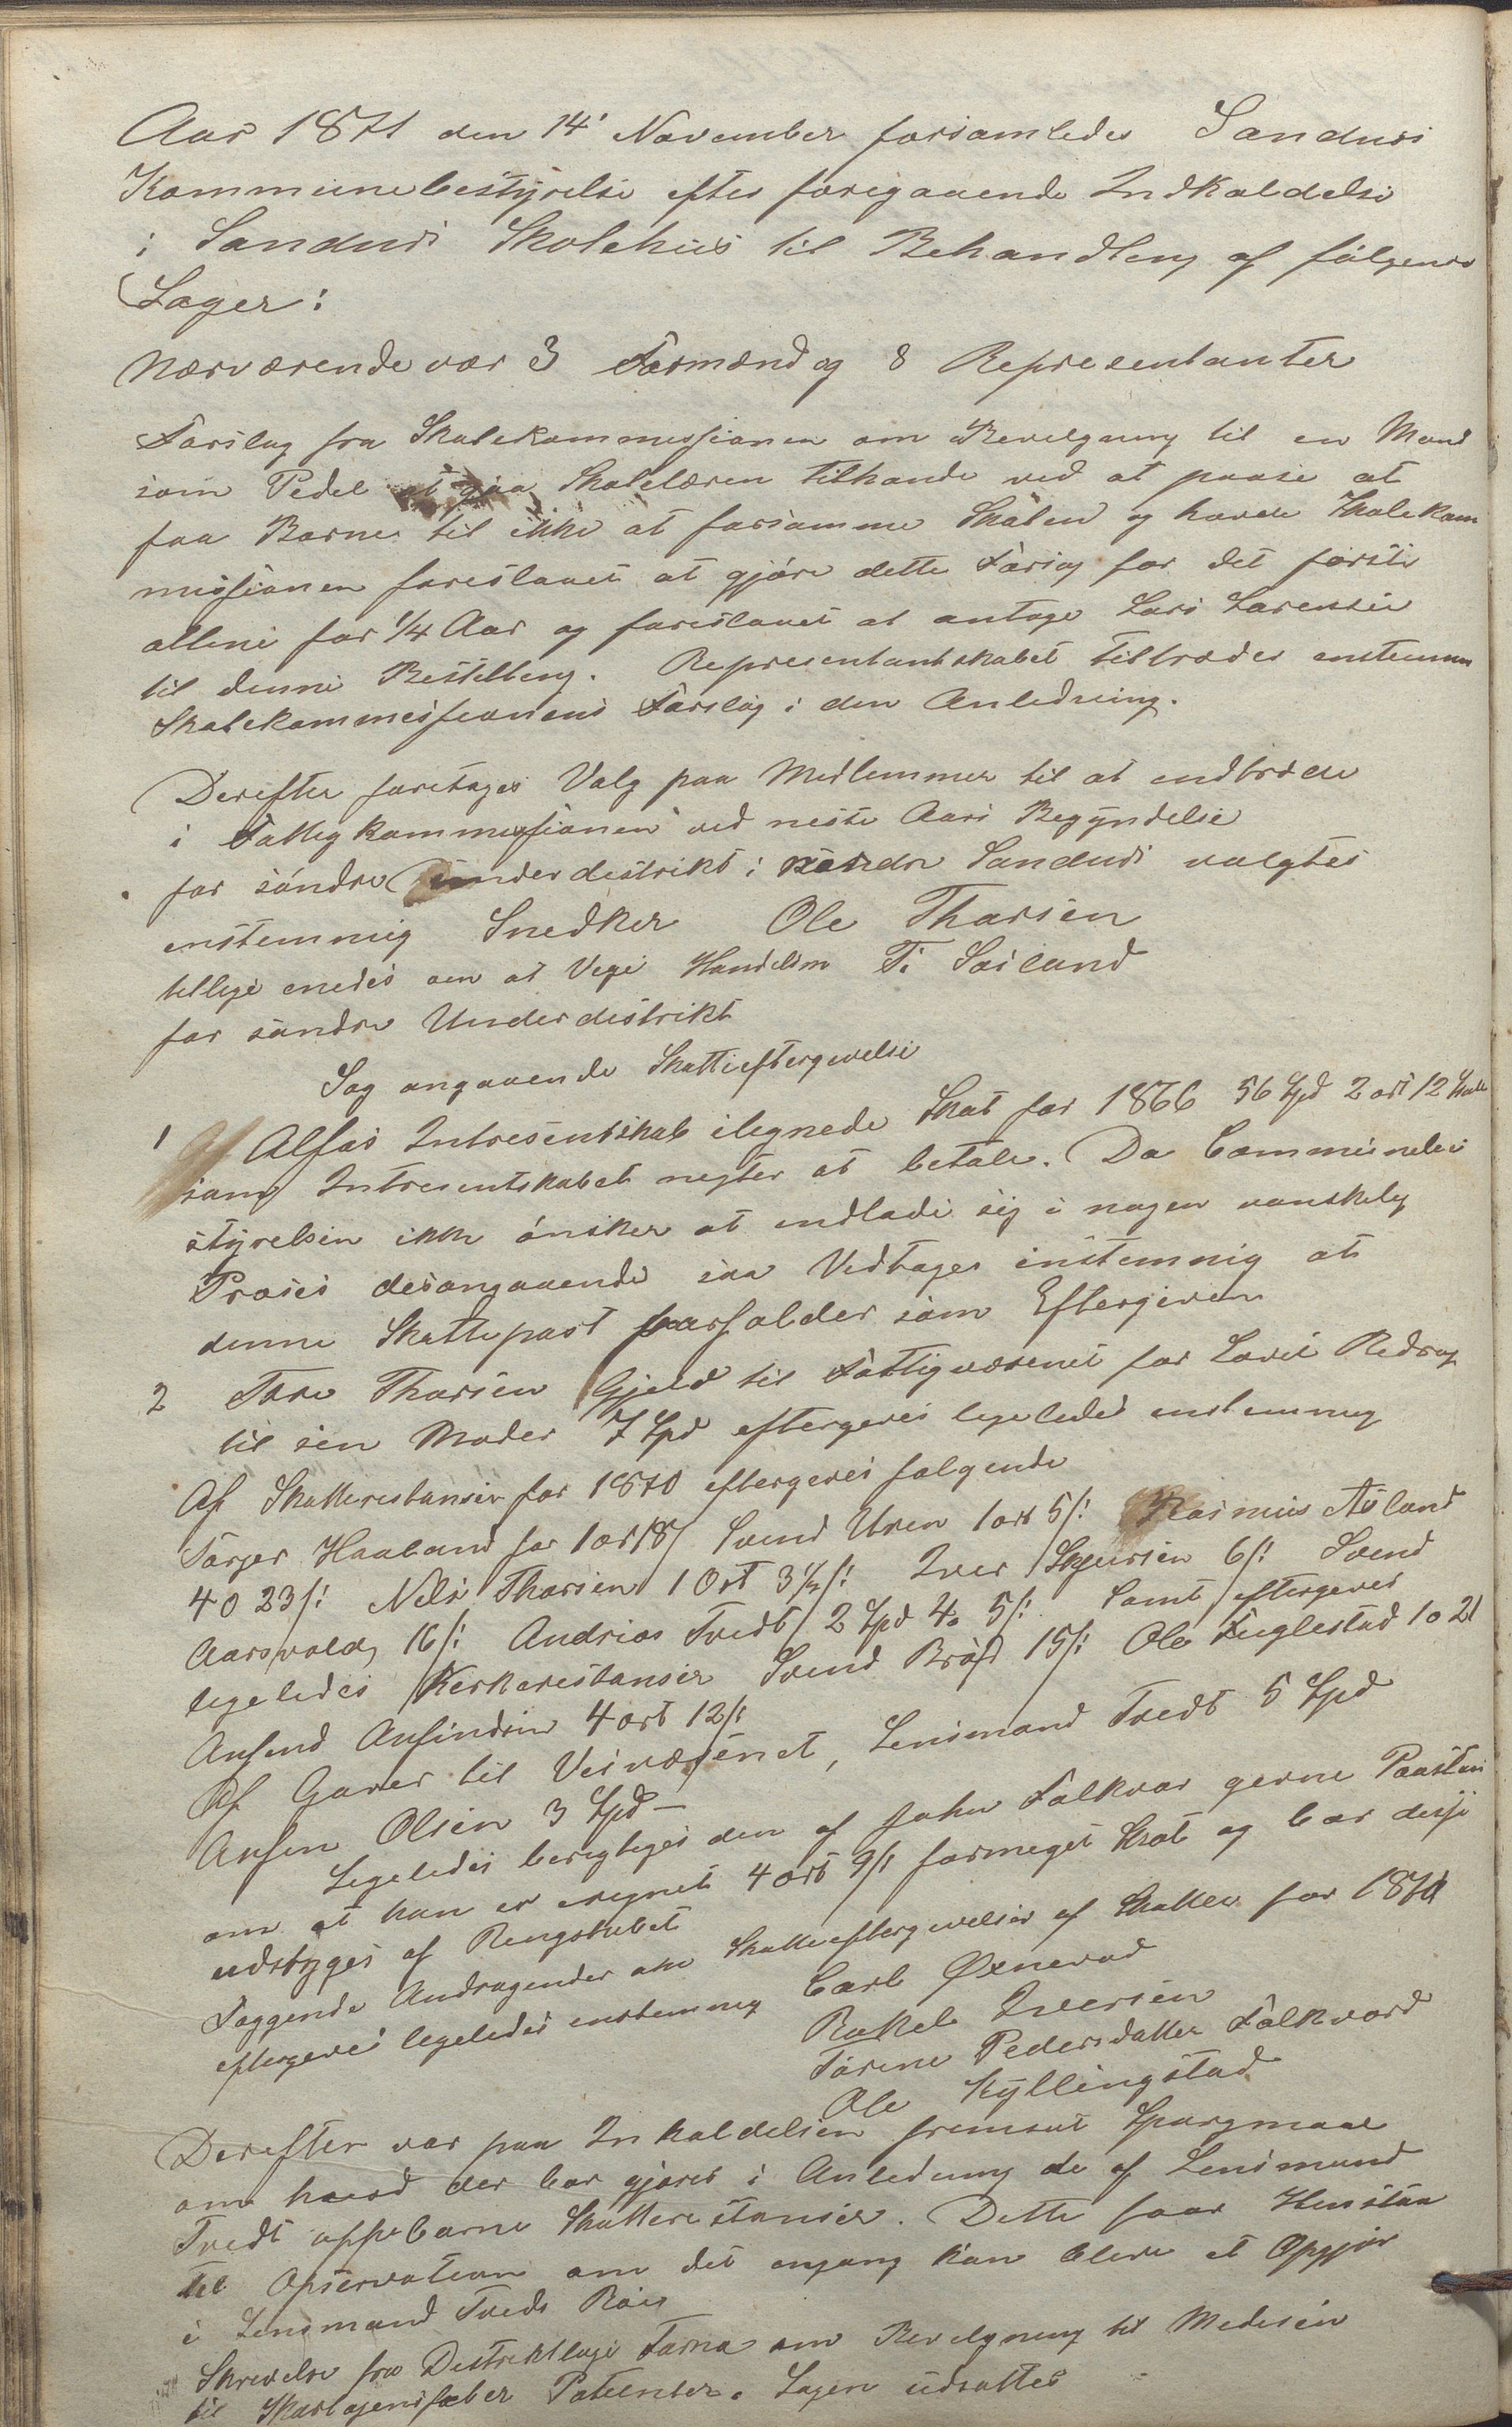 Aar 1871 den 14' November forsamledes Sandnes
Kommunebestyrelse efter foregaaende Indkaldelse
i Sandnes Skolehus til Behandling af følgende
Sager:
Nærværende var 3 Formænd og 8 Representanter
Forslag fra Skolekommissionen om Bevelgning til en Mand
som Pedel at gaa Skolelæren tilhande ved at paase at
faa Barne til ikke at forsømme Skolen og havde Skolekom
missionen foreslaaet at gjøre dette Forsøg for det første
allene for 1/4 Aar og foreslaaet at antage Lars Larensen
til denne Bestilling. Representantskabet tiltræder enstemm
Skolekommissionens Forslag i den Anledning.
Derefter foretages Valg paa Medlemmer til at indtræde
i Fattigkommissionen ved neste Aars Begyndelse
for søndre Underdistrikt i søndre Sandnes valgtes
enstemmig Snedker Ole Tharsen
tillige enedes om at Vege Handelsm T. Soiland
for søndre Underdistrikt
Sag angaaende Skatteeftergivelse
1 Alfas Intresentskab ilegnede Skat for 1866 56 Spd 2 ort 12 Skill
som Intresentskabet negter at betale. Da Communebe
styrelsen ikke ønsker at indlade sig i nogen vanskelig
Proses desangaaende saa Vedtages enstemmig at
denne Skattepost forfalder som Eftergiven
2 Tore Tharsen Gjeld til Fattigvæsenet for Lovet Bedrag
til sen Moder 7 Spd eftergeves legeledes enstemmig
Af Skatterestanser for 1870 eftergeves følgende
Tørger Haaland for 1 ort 18/ Svend Uren 1 ort 5/: Rasmus Asland
4 O 23/: Nels Tharsen 1 Ort 3 1/2/: Iver Sigursen 6/: Svend
Aarsvold 16/: Andrias Tvedt 2 Spd 4o 5/: Samt eftergeves
legeledes Kerkerestanser Svend Brøjd 15/: Ole Fuglestad 1 o 21
Anfend Anfindsen 4 ort 12/:
Af Gaver til Veivæsenet, Lensmand Tvedt 5 Spd
Anfen Olsen 3 Spd –
Legeledes beregtiges den af John Falkvor gevne Paastan
om at han er eregnet 4 ort 9/: formeget Skat og bør desse
udstryges af Rengskabet
Føggende Andragender om Skatteeftergevelse af Skatten for 1871
eftergeves legeledes enstemmig Carl Øxnevad
Rakel Iversen
Tørene Pedersdatter Falkvord
Ole Kyllingstad
Derefter var paa Inkaldelsen fremsat Spørgmaal
om hvad der bør gjøres i Anledning de af Lensmand
Tvedt oppebarne Skatterestanser. Dette faar Henstaa
til Opservation om det engang kan bleve et Opgjør
i Lensmand Tveds Bo
Skrevelse fra Destriktlæge Tarna om Bevelgning til Medesin
til Skarlagensfeber Patienter. Sagen udsattes